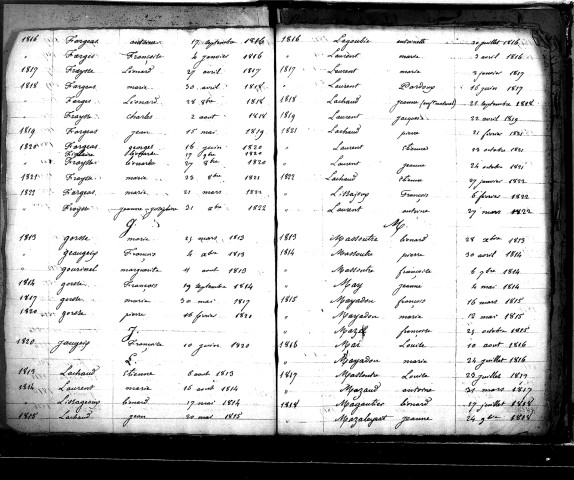 1816 Farges antoine 17 septembre 1816
" Farges Françoise 4 janvier 1816
1817 Fraysse Léonard 27 avril 1817
1818 Farges marie 30 avril 1818
" Farges Léonard 28 8bre 1818
" Fraysse charles 2 aout 1818
1819 Farges jean 15 mai 1819
1820 Forgeas george 16 juin 1820
17 9bre 1820
" Fraysse Léonarde 27 8bre 1820
1821 Fraysse marie 23 8bre 1821
1822 Forgeas marie 21 mars 1822
" Fraysse jeanne josephine 31 xbre 1822
G.
1813 gorsse marie 25 mars 1813
" François 4 xbre 1813
" gourinel marguerite 11 aout 1813
1814 gorsse François 19 septembre 1814
1817 gorsse marie 30 mai 1817
1820 gorsse pierre 16 février 1820
J.
1820 jaugeix Françoise 10 janvier 1820
L.
1813 Lachaud Etienne 8 aout 1813
1814 Laurent marie 16 aout 1814
" Lissageoux Léonard 17 mai 1814
1815 Lachaud jean 20 mai 1815
1816 antoinette 20 juillet 1816
" Laurent marie 3 avril 1816
1817 Laurent marie 2 janvier 1817
" Laurent 16 juin 1817
1818 Lachaud jeanne (enf. naturel) 21 septembre 1818
1819 Laurent jacques 22 avril 1819
1821 Lachaud pierre 21 février 1821
" Laurent Etienne 23 octobre 1821
" Laurent jeanne 24 octobre 1821
1822 Lachaud Etienne 27 janvier 1822
" Lissajoux François 6 février 1822
" Laurent antoine 27 mars 1822
M.
1813 Massoutre Léonard 28 xbre 1813
1814 Massoutre pierre 30 avril 1814
" Massoutre françoise 6 9bre 1814
" May jeanne 4 mai 1814
1815 Mayadou françois 16 mars 1815
" Mayadou marie 12 mai 1815
" françoise 25 octobre 1815
1816 Mai Louise 10 aout 1816
" Mayadou marie 24 juillet 1816
1817 Massoutre Louise 23 juillet 1817
" Mazaud antoine 31 mars 1817
1818 Magoutier Léonard 27 juillet 1818
" Mazaleyrat jeanne 24 9bre 1818